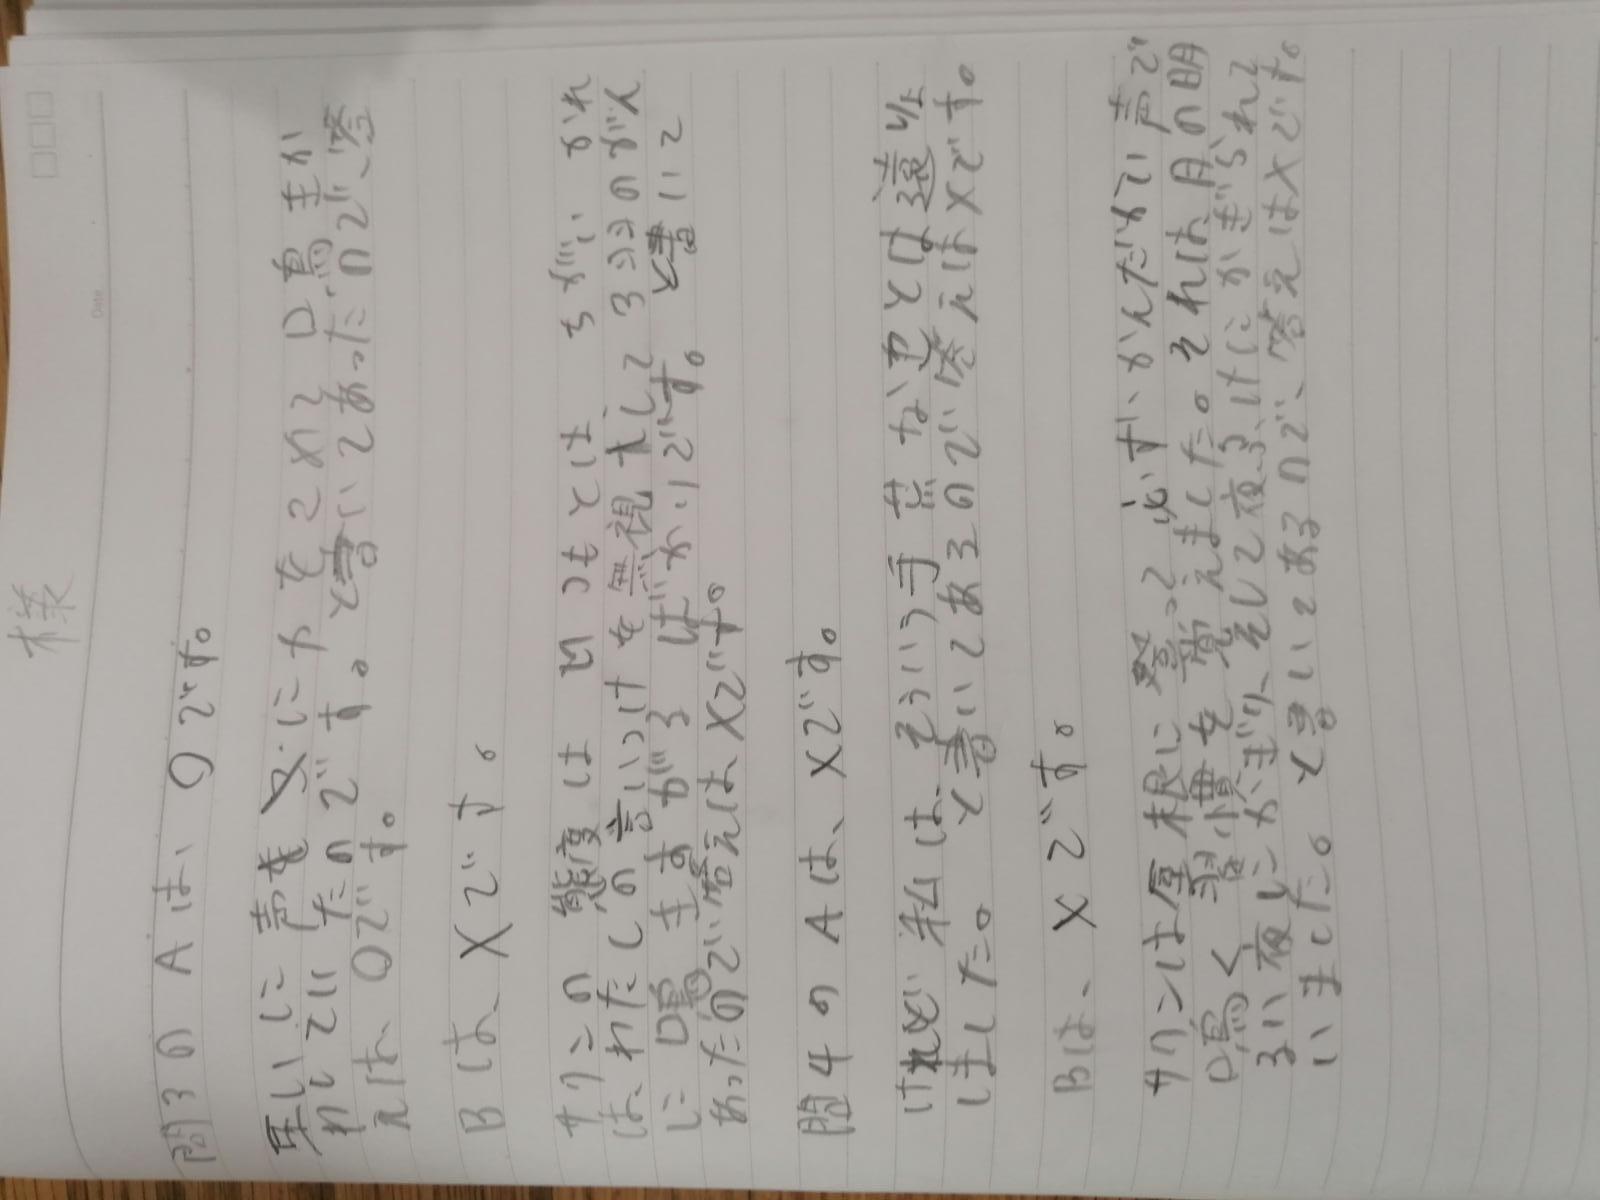 様
Date
問3のAは、○です。
互いに声を交にチをこめて鳴きか
わしていたのです。と書いてあった、ので、答
えは、○です。
Bは、×です。
サリンの態度は日ごとはそが、かれ
は、わたしの言いつけを無視して3日のがん
に鳴ますがるばかりです。と書いて
あったので、答えは×です。
問4のAは、×です。
けれど、私は、そういう手荒なやとは違
しました。と書いてあるので、答えは×です。
Bは、×です。
サリンは屋根に登って、必ず、かんだかい声で
鳴く習慣を覚えました。それは月の明
るい夜にかぎり、そして夜ふけにかぎられて
いました。と書いてあるので、答えは×です。